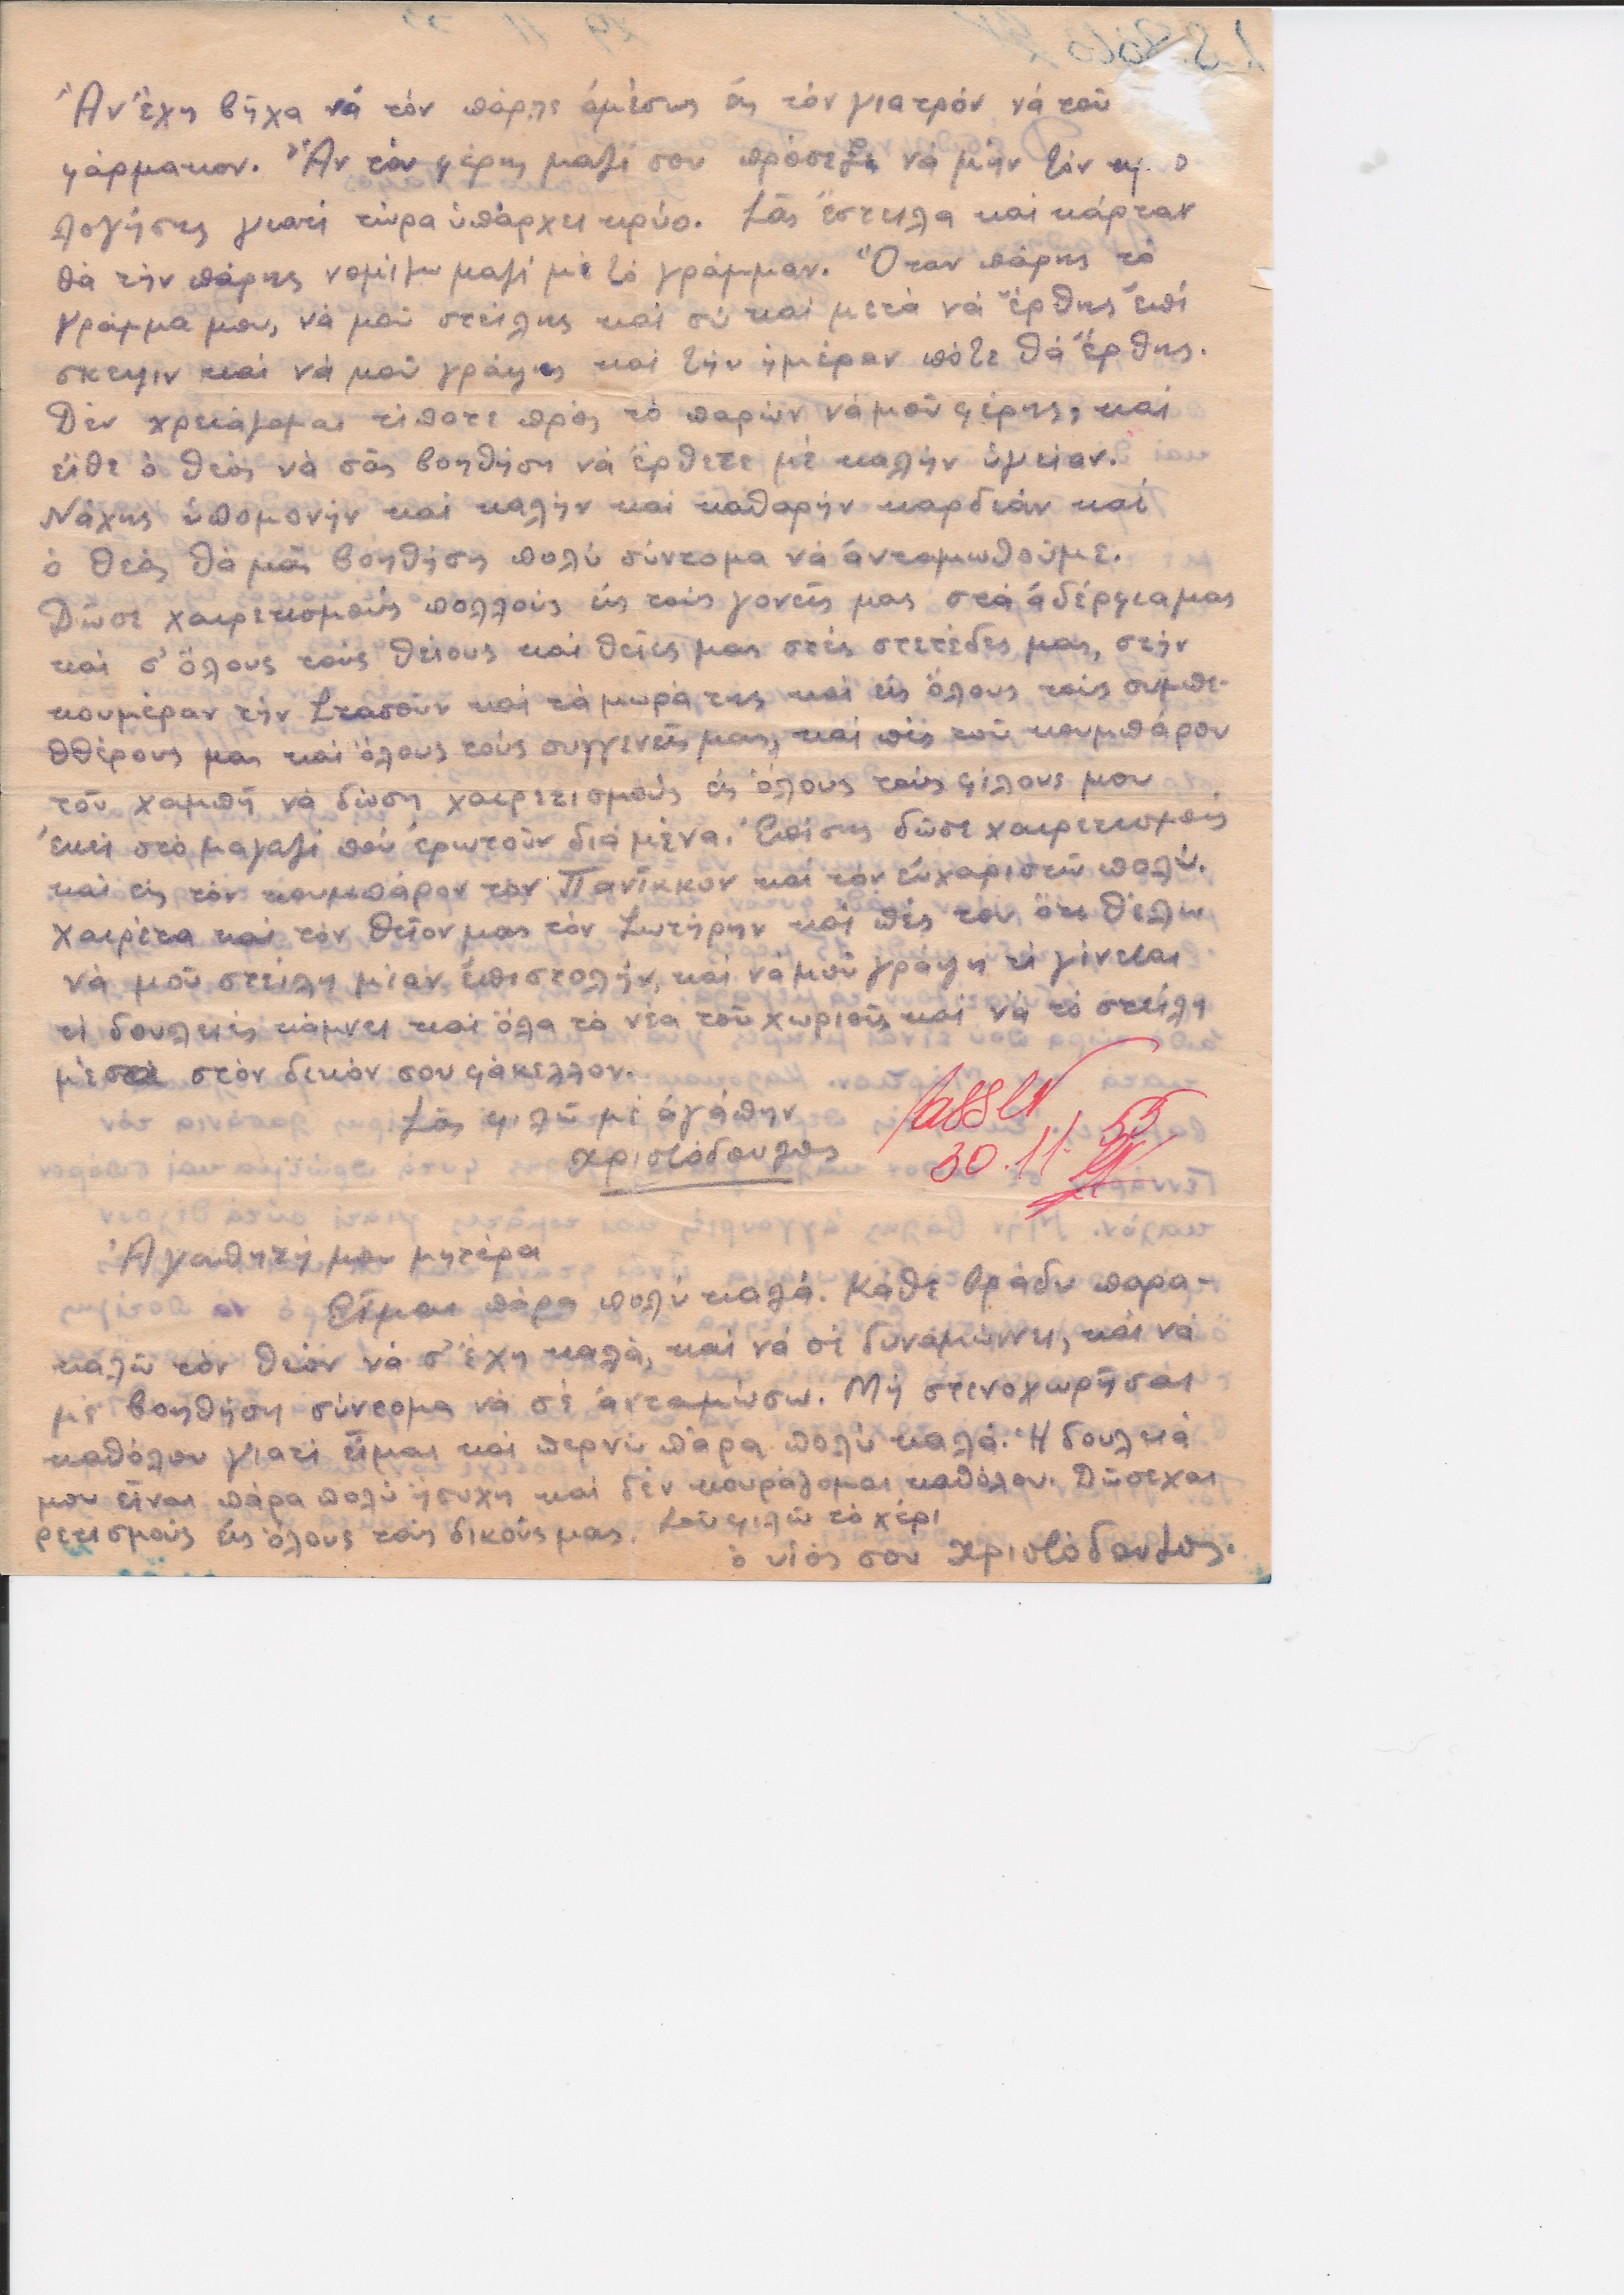 Ἄν ἔχη βῆχα νά τόν πάρης ἀμέσως εἰς τόν γιατρόν νά τοῦ
φάρμακον. Ἄν τόν φέρης μαζί σου πρόσεξε νά μήν τόν κρυο
λογήσης γιατί τώρα ὑπάρχει κρύο. Σᾶς ἔστειλα καί κάρταν
θά τήν πάρης νομίζω μαζί μέ τό γράμμαν. Ὅταν πάρης τό
γράμμα μου, νά μοῦ στείλης καί σύ καί μετά νά ἔρθης ἐπί
σκεψιν καί νά μοῦ γράψης καί τήν ἡμέραν πότε θά ἔρθης.
Δέν χρειάζομαι τίποτε πρός τό παρών νά μοῦ φέρης, καί
εἴθε ὁ θεός νά σᾶς βοηθήση νά ἔρθετε μέ καλήν ὑγείαν.
Νάχης ὑπομονήν καί καλήν καί καθαρήν καρδιάν καί
ὁ θεός θά μᾶς βοηθήση πολύ σύντομα νά ἀνταμωθοῦμε.
Δῶσε χαιρετισμούς πολλούς εἰς τούς γονεῖς μας στά ἀδέρφια μας
καί σ' ὅλους τούς θείους καί θεῖες μας στές στετέδες μας, στήν
κουμέραν τήν Στασοῦν καί τά μωρά της καί εἰς ὅλους τούς συμπε-
θθέρους μας καί ὅλους τούς συγγενεῖς μας, καί πές τοῦ κουμπάρου
τοῦ χαμπῆ νά δώση χαιρετισμούς εἰς ὅλους τούς φίλους μου
ἐκεῖ στό μαγαζί πού ἐρωτοῦν διά μένα. Ἐπίσης δῶσε χαιρετισμούς
καί εἰς τόν κουμπάρον τόν Πανῖκκον καί τόν εὐχαριστῶ πολύ.
Χαιρέτα καί τόν θεῖον μας τόν Σωτήρην καί πές του ὅτι θέλω
νά μοῦ στείλη μίαν ἐπιστολήν, καί νά μοῦ γράψη τί γίνεται
τί δουλειές κάμνει καί ὅλα τά νέα τοῦ χωριοῦ καί νά τό στείλη
μέσα στόν δικόν σου φάκελλον.
Σᾶς φιλῶ μέ ἀγάπην
Χριστόδουλος
Passed
30.11.55
Ἀγαπητή μου μητέρα
Εἶμαι πάρα πολύ καλά. Κάθε βράδυ παρα-
καλῶ τόν θεόν νά σ' ἔχη καλά, καί νά σέ δυναμώνει, καί νά
μέ βοηθήση σύντομα νά σέ ἀνταμώσω. Μή στενοχωρῆσαι
καθόλου γιατί εἶμαι καί περνῶ πάρα πολύ καλά. Ἡ δουλειά
μου εἶναι πάρα πολύ ἥσυχη καί δέν κουράζομαι καθόλου. Δῶσε χαι
ρετισμούς εἰς ὅλους τούς δικούς μας. Σοῦ φιλῶ τό χέρι
ὁ υἱός σου Χριστόδουλος.